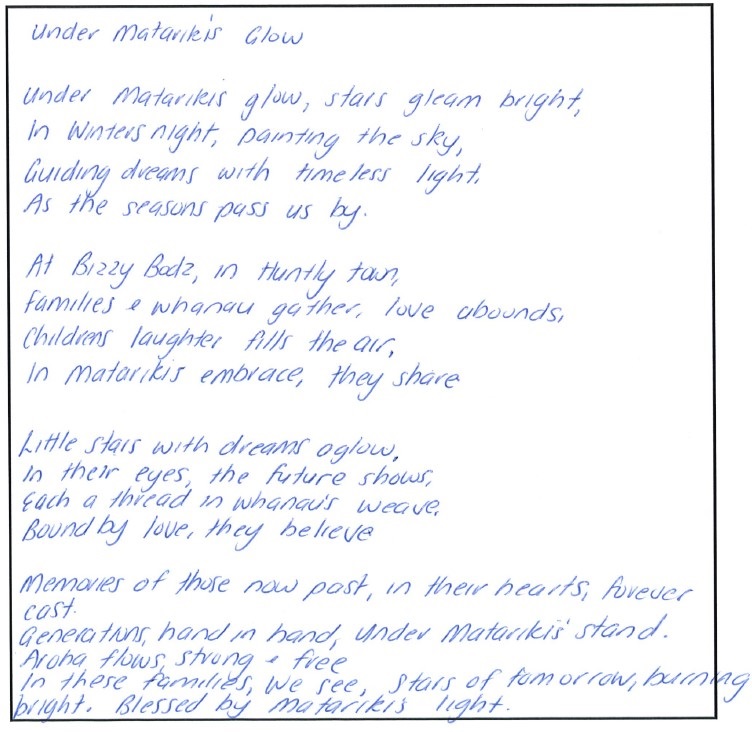 Under Matariki's Glow
Under Matarikis glow, stars gleam bright,
In Winters night, painting the sky,
Guiding dreams with timeless light.
As the seasons pass us by.
At Bizzy Bodz, in Huntly town,
Families & whanau gather, love abounds,
Childrens laughter fills the air,
In Matarikis embrace, they share
Little stars with dreams aglow,
In their eyes, the future shows,
Each a thread in whanau's weave,
Bound by love, they believe
Memories of those now past, in their hearts, forever
cast.
Generations, hand in hand, Under Matarikis' stand.
Aroha flows, strong & free
In these families, we see, Stars of tomorrow, burning
bright. Blessed by Matarikis light.